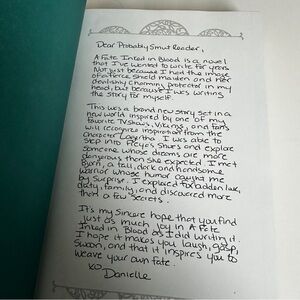 Dear Probably Smut Reader,
A Fate Inked in Blood is a novel
that I've wanted to write for years
Not just because I had the image
of a fierce shield maiden and her
devilishly charming protector in my
head, but because I was writing
the story for myself.
This was a brand new story set in a
new world inspired by one of my
favorite TV shows, Vikings, and fans
will recognize inspiration from the
character Lagertha. I was able to
step into Freya's shoes and explore
someone whose dreams are more
dangerous than she expected. I met
Bjorn, a tall, dark and handsome
warrior whose humor caught me
by surprise. I explored forbidden love,
duty, family, and discovered more
than a few secrets.
It's my sincere hope that you find
just as much joy in A Fate
Inked in Blood as I did writing it.
I hope it makes you laugh, gasp,
swoon, and that it inspires you to
weave your own fate.
xo Danielle